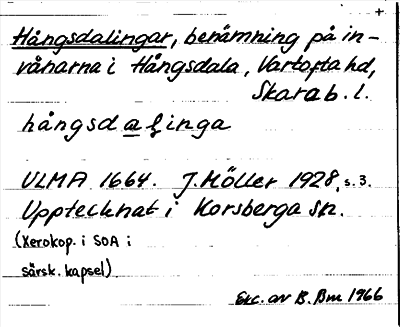 +
Hångsdalingar, benämning på in-
vånarna i Hångsdala, Vartofta hd,
Skarab. l.
hångsdaḷinga
ULMA 1664. J. Möller 1928, s. 3.
Upptecknat i Korsberga sn.
(Xerokop. i SOA i
särsk. kapsel)
Exc. av B. Bm 1966